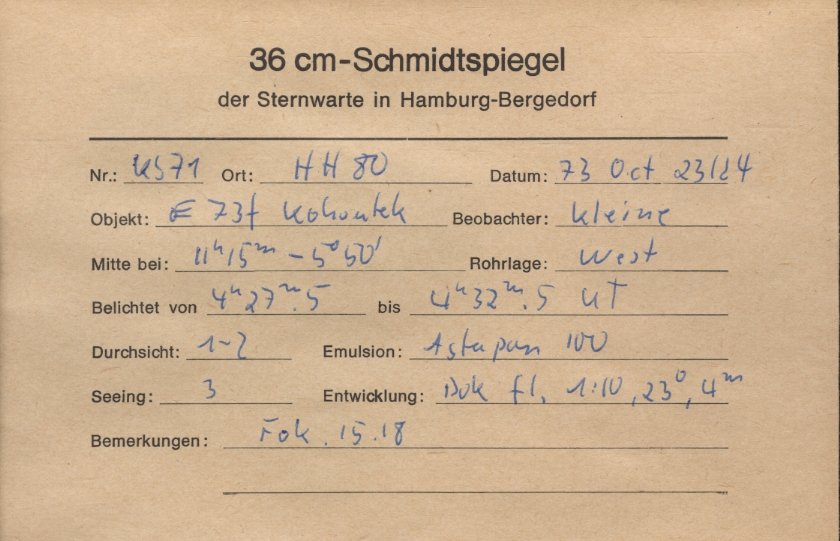 36 cm-Schmidtspiegel
der Sternwarte in Hamburg-Bergedorf
Nr.: KS71 Ort: HH 80 Datum: 73 Oct 23/24
Objekt: 73f Kohoutek Beobachter: Kleine
Mitte bei: 11ʰ15ᵐ -5°50' Rohrlage: West
Belichtet von 4ʰ27ᵐ.5 bis 4ʰ32ᵐ.5 UT
Durchsicht: 1-2 Emulsion: 100
Seeing: 3 Entwicklung: Dok fl. 1:10, 23°, 4ᵐ
Bemerkungen: Fok. 15.18